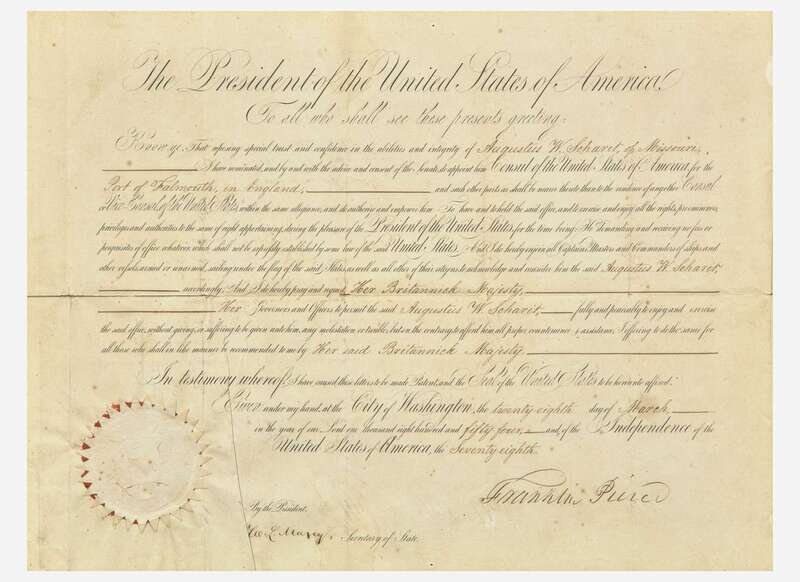 The President of the United States of America,
To all who shall see these presents greeting:
Know ye, That reposing special trust and confidence in the abilities and integrity of Augustus W. Scharit, of Missouri,
I have nominated, and by and with the advice and consent of the Senate do appoint him Consul of the United States of America, for the
Port of Falmouth, in England, and such other parts as shall be nearer thereto than to the residence of any other Consul
or Vice Consul of the United States, within the same allegiance, and do authorize and empower him To have and to hold the said office, and to exercise and enjoy all the rights, preeminences,
privileges and authorities to the same of right appertaining, during the pleasure of the President of the United States, for the time being: He demanding and receiving no fees or
perquisites of office whatever, which shall not be expressly established by some law of the said United States. And I do hereby enjoin all Captains, Masters and Commanders of ships and
other vessels, armed or unarmed, sailing under the flag of the said States, as well as all other of their citizens, to acknowledge and consider him the said Augustus W. Scharit,
accordingly. And I do hereby pray and request Her Britannick Majesty,
Her Governors and Officers to permit the said Augustus W. Scharit, fully and peaceably to enjoy and exercise
the said office, without giving, or suffering to be given unto him, any molestation or trouble, but on the contrary to afford him all proper countenance & assistance; I offering to do the same for
all those who shall in like manner be recommended to me by Her said Britannick Majesty
In testimony whereof, I have caused these letters to be made Patent, and the Seal of the United States to be hereunto affixed.
Given under my hand, at the City of Washington, the twenty eighth day of March,
in the year of our Lord one thousand eight hundred and fifty four, and of the Independence of the
United States of America, the Seventy eighth.
Franklin Pierce
By the President.
W. L. Marcy, Secretary of State.